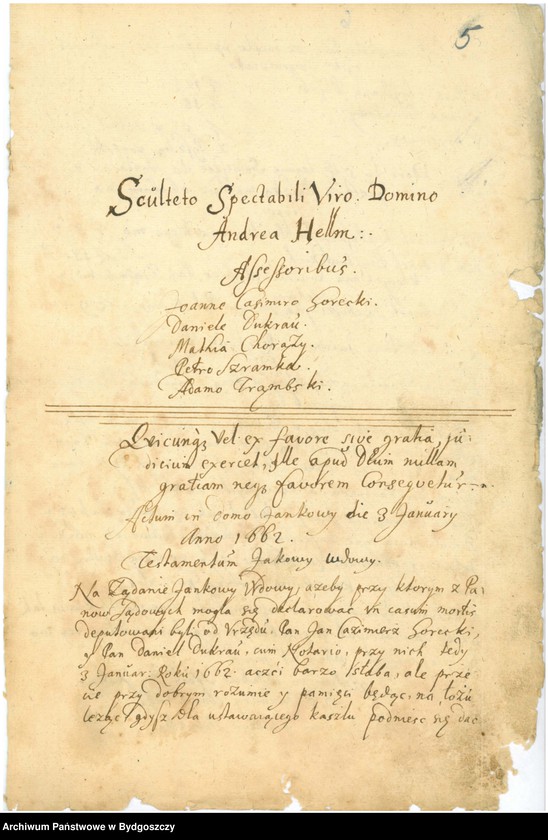 5
Scŭlteto Spectabili Viro. Domino
Andrea Hellm:.
Assessoribŭs.
Joanne Casimiro Gorecki.
Daniele Dukraŭ.
Mathia Chorąży.
Petro Szramka.
Adamo Trąmbski.
Qvicunqꝫ Vel ex favore sive gratia, jŭ:
dicium exercet, Ille apŭd Dĕum nullam
gratiam neqꝫ favorem Conseqvetŭr
Actum in domo Jankowy die 3 January
Anno 1662.
Testamentŭm Jakowy wdowy.
Na Ządanie Jankowy Wdowy, azeby przy ktorym z Pa:
now Sądowych mogla się declarowac in casum mortis
deputowani byli od Vrzędu. Pan Jan Cazimierz Gorecki,
y Pan Daniel Dukraŭ, cum Notario, przy nich tedy
3 Januar: Rokŭ 1662. aczci barzo Istaba, ale prze
cie przy dobrym rozumie y pamięci będąc, na łozŭ
leząc, gdysz dla ustawającego kaszlu podniesc się dac
Archiwum Państwowe w Bydgoszczy